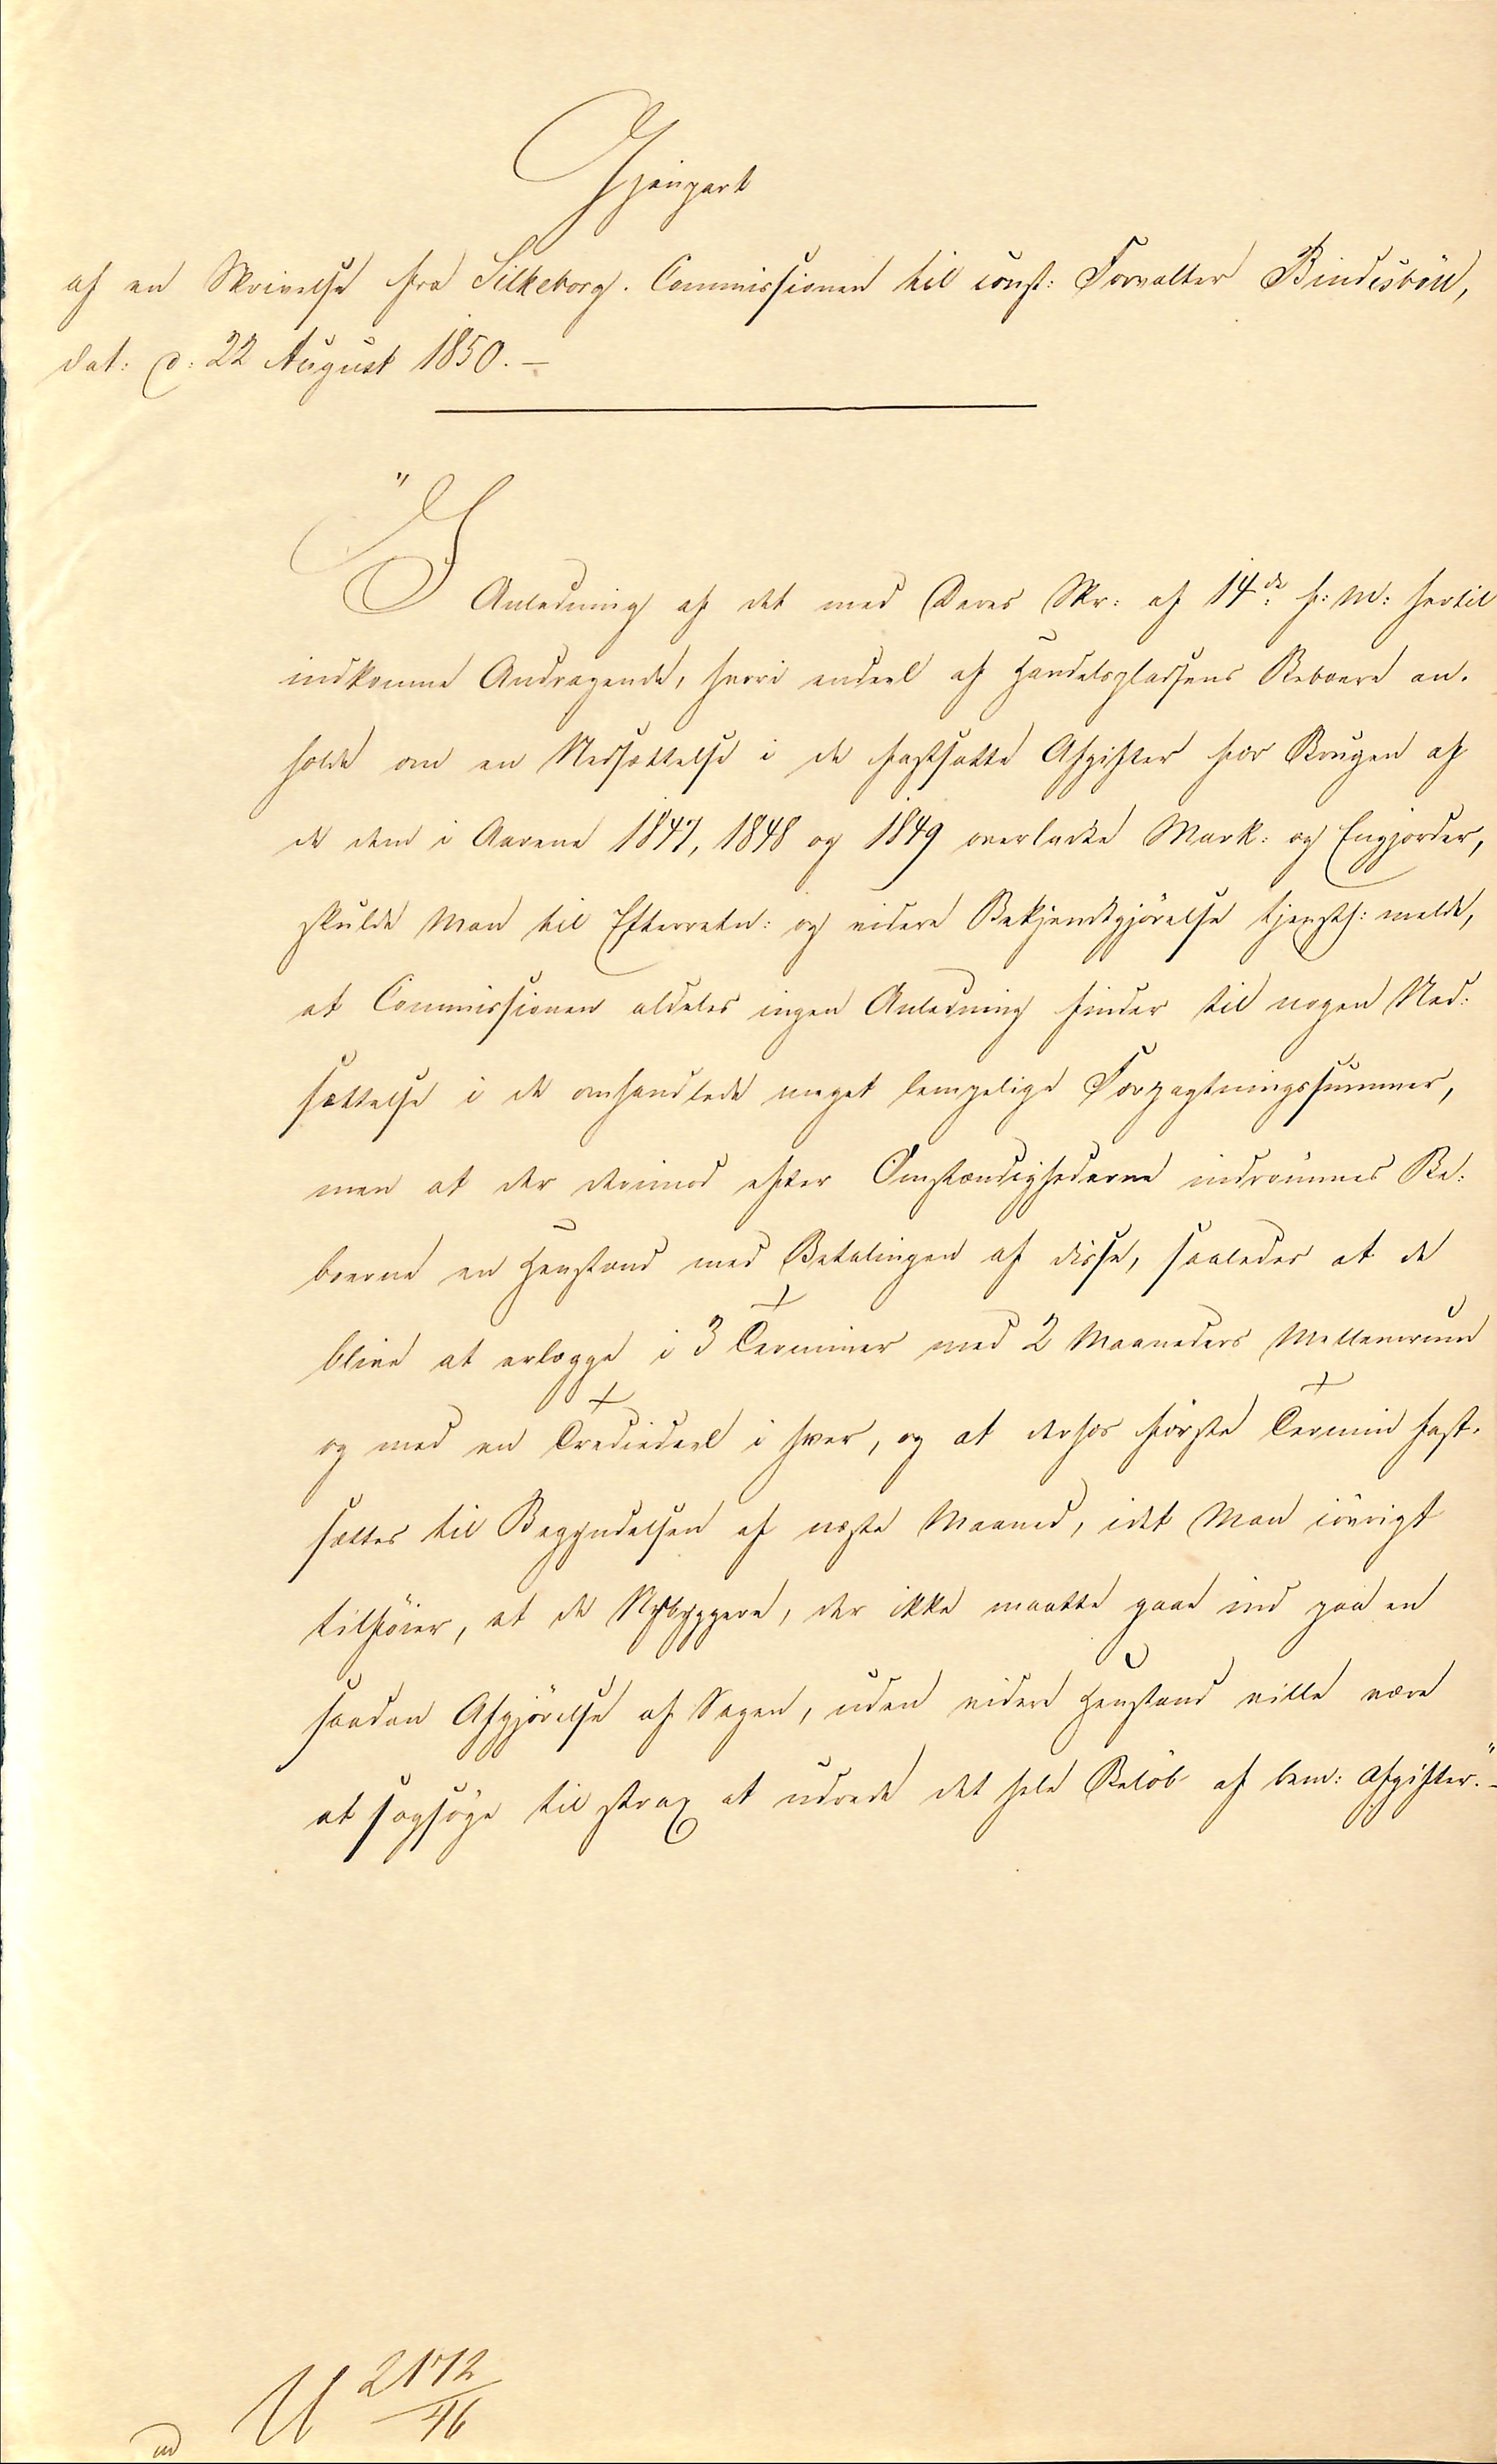 Gjenpart
af en Skrivelse fra Silkeborg-Commissionen til const: Forvalter Bindesböll,
dat: d: 22 August 1850.–
"I Anledning af det med Deres Skr: af 14de f: M: hertil
indkomne Andragende, hvori endeel af Handelspladsens Beboere an-
holde om en Nedsættelse i de fastsatte Afgifter for Brugen af
de dem i Aarene 1847, 1848 og 1849 overladte Mark- og Engjorder,
skulde Man til Efterretn: og videre Bekjendtgjörelse tjenstl: melde,
at Commissionen aldeles ingen Anledning finder til nogen Ned-
sættelse i de omhandlede meget lempelige Forpagtningssummer,
men at der derimod efter Omstændighederne indrömmes Be-
boerne en Henstand med Betalingen af disse, saaledes at de
blive at erlægge i 3 Terminer med 2 Maaneders Mellemrum
og med en Trediedeel i hver, og at derhos förste Termin fast-
sættes til Begyndelsen af næste Maaned, idet Man iövrigt
tilföier, at de Nybyggere, der ikke maatte gaae ind paa en
saadan Afgjörelse af Sagen, uden videre Henstand ville være
at sagsöge til strax at udrede det hele Belöb af bem: Afgifter."–
U 2172/46